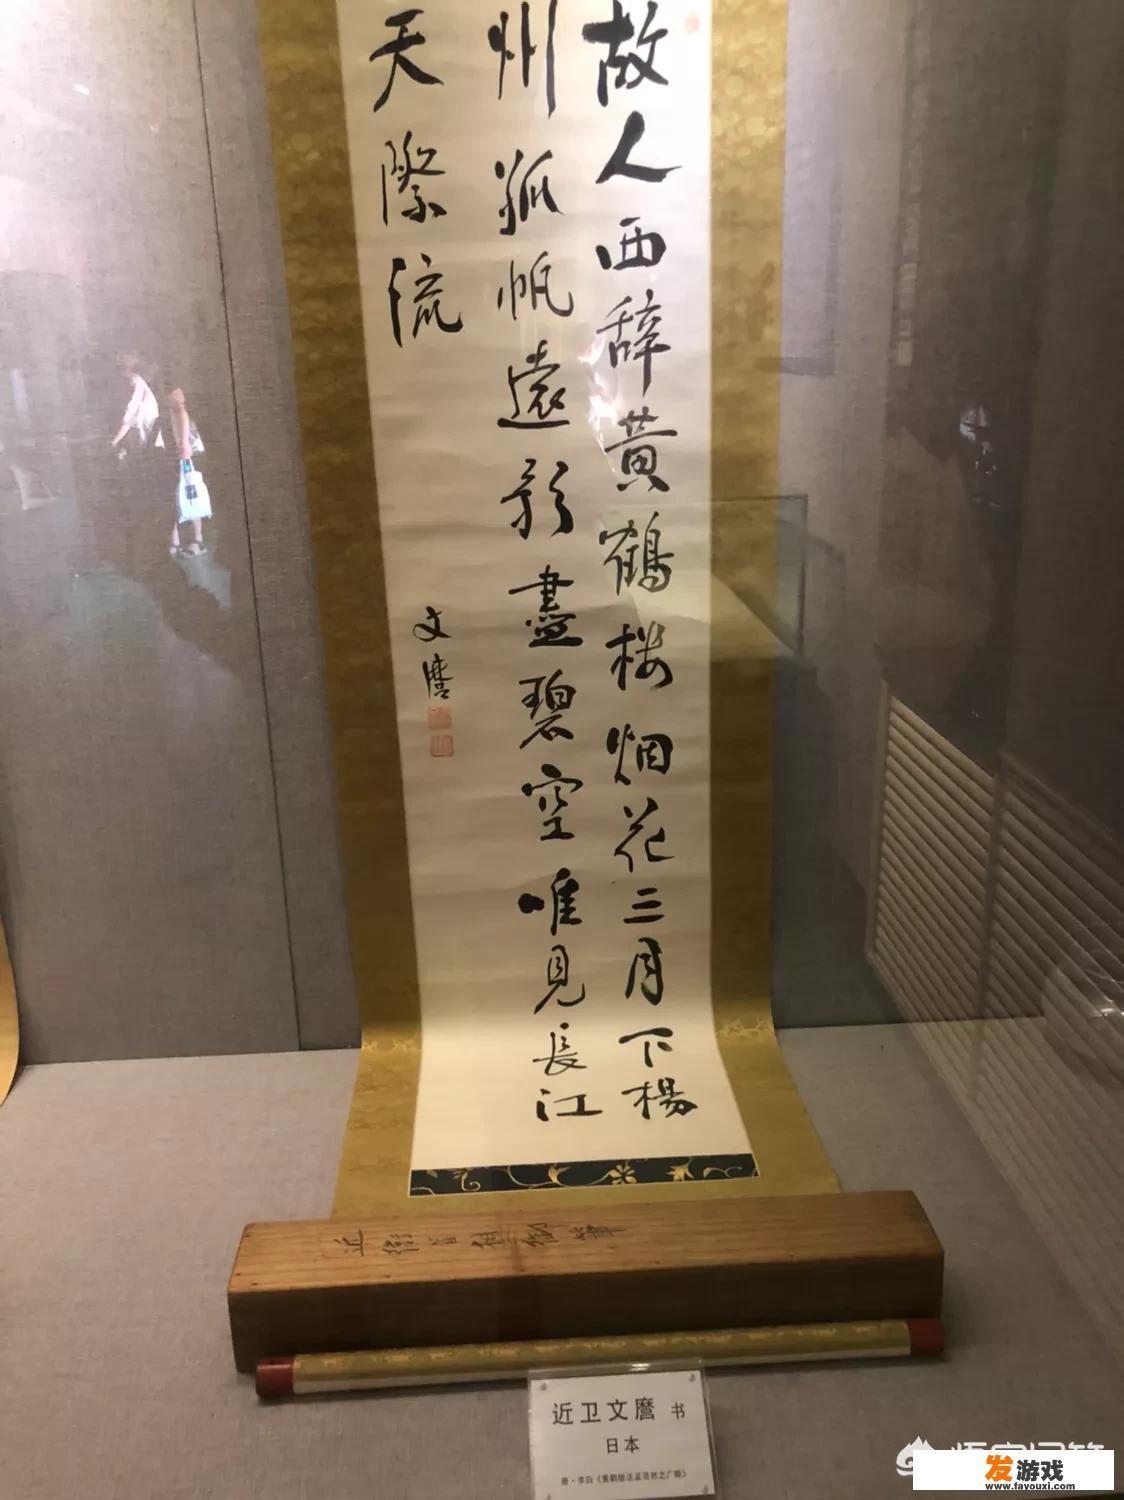 故人西辞黄鶴楼烟花三月下楊
州孤帆遠影盡碧空唯見長江
天際流
文麿
近衛首相御筆
近卫文麿 书
日本
唐·李白《黄鹤楼送孟浩然之广陵》
发游戏
www.fayouxi.com